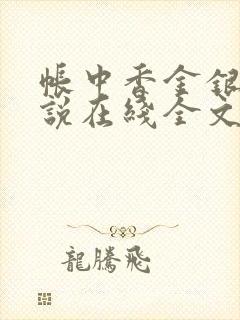 帳中香金銀
說在綫全文
龍騰飛